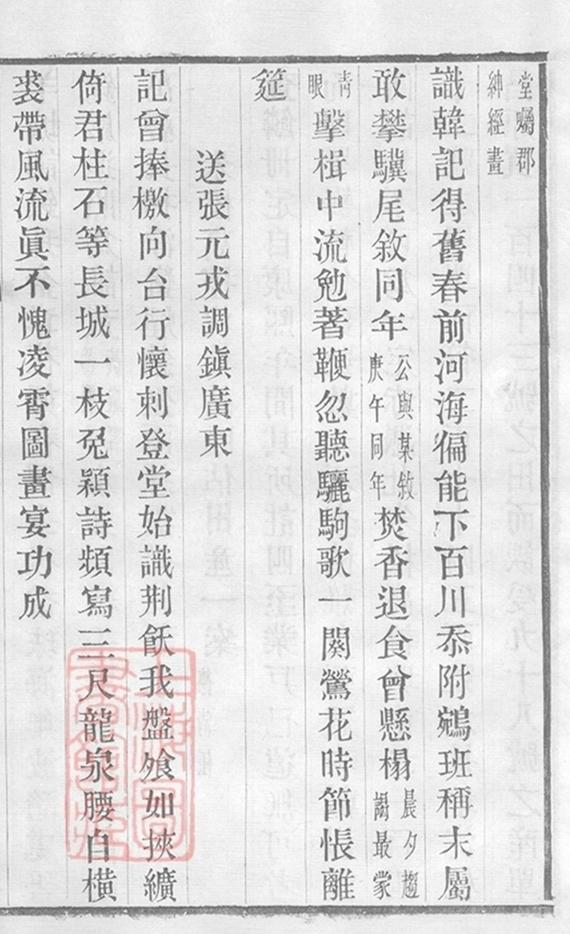 堂屬郡
紳經畫
識韓記得舊春前河海偏能下百川忝附鵷班稱末屬
敢攀驥尾敘同年公與某敘庚午同年焚香退食曾懸榻晨夕趨謁最蒙
青眼擊楫中流勉著鞭忽聽驪駒歌一闋鶯花時節悵離
筵
送張元戎調鎮廣東
記曾捧檄向台行懷刺登堂始識荆飫我盤飧如挾纊
倚君柱石等長城一枝兔穎詩頻寫三尺龍泉腰自橫
裘帶風流眞不愧凌霄圖畫宴功成